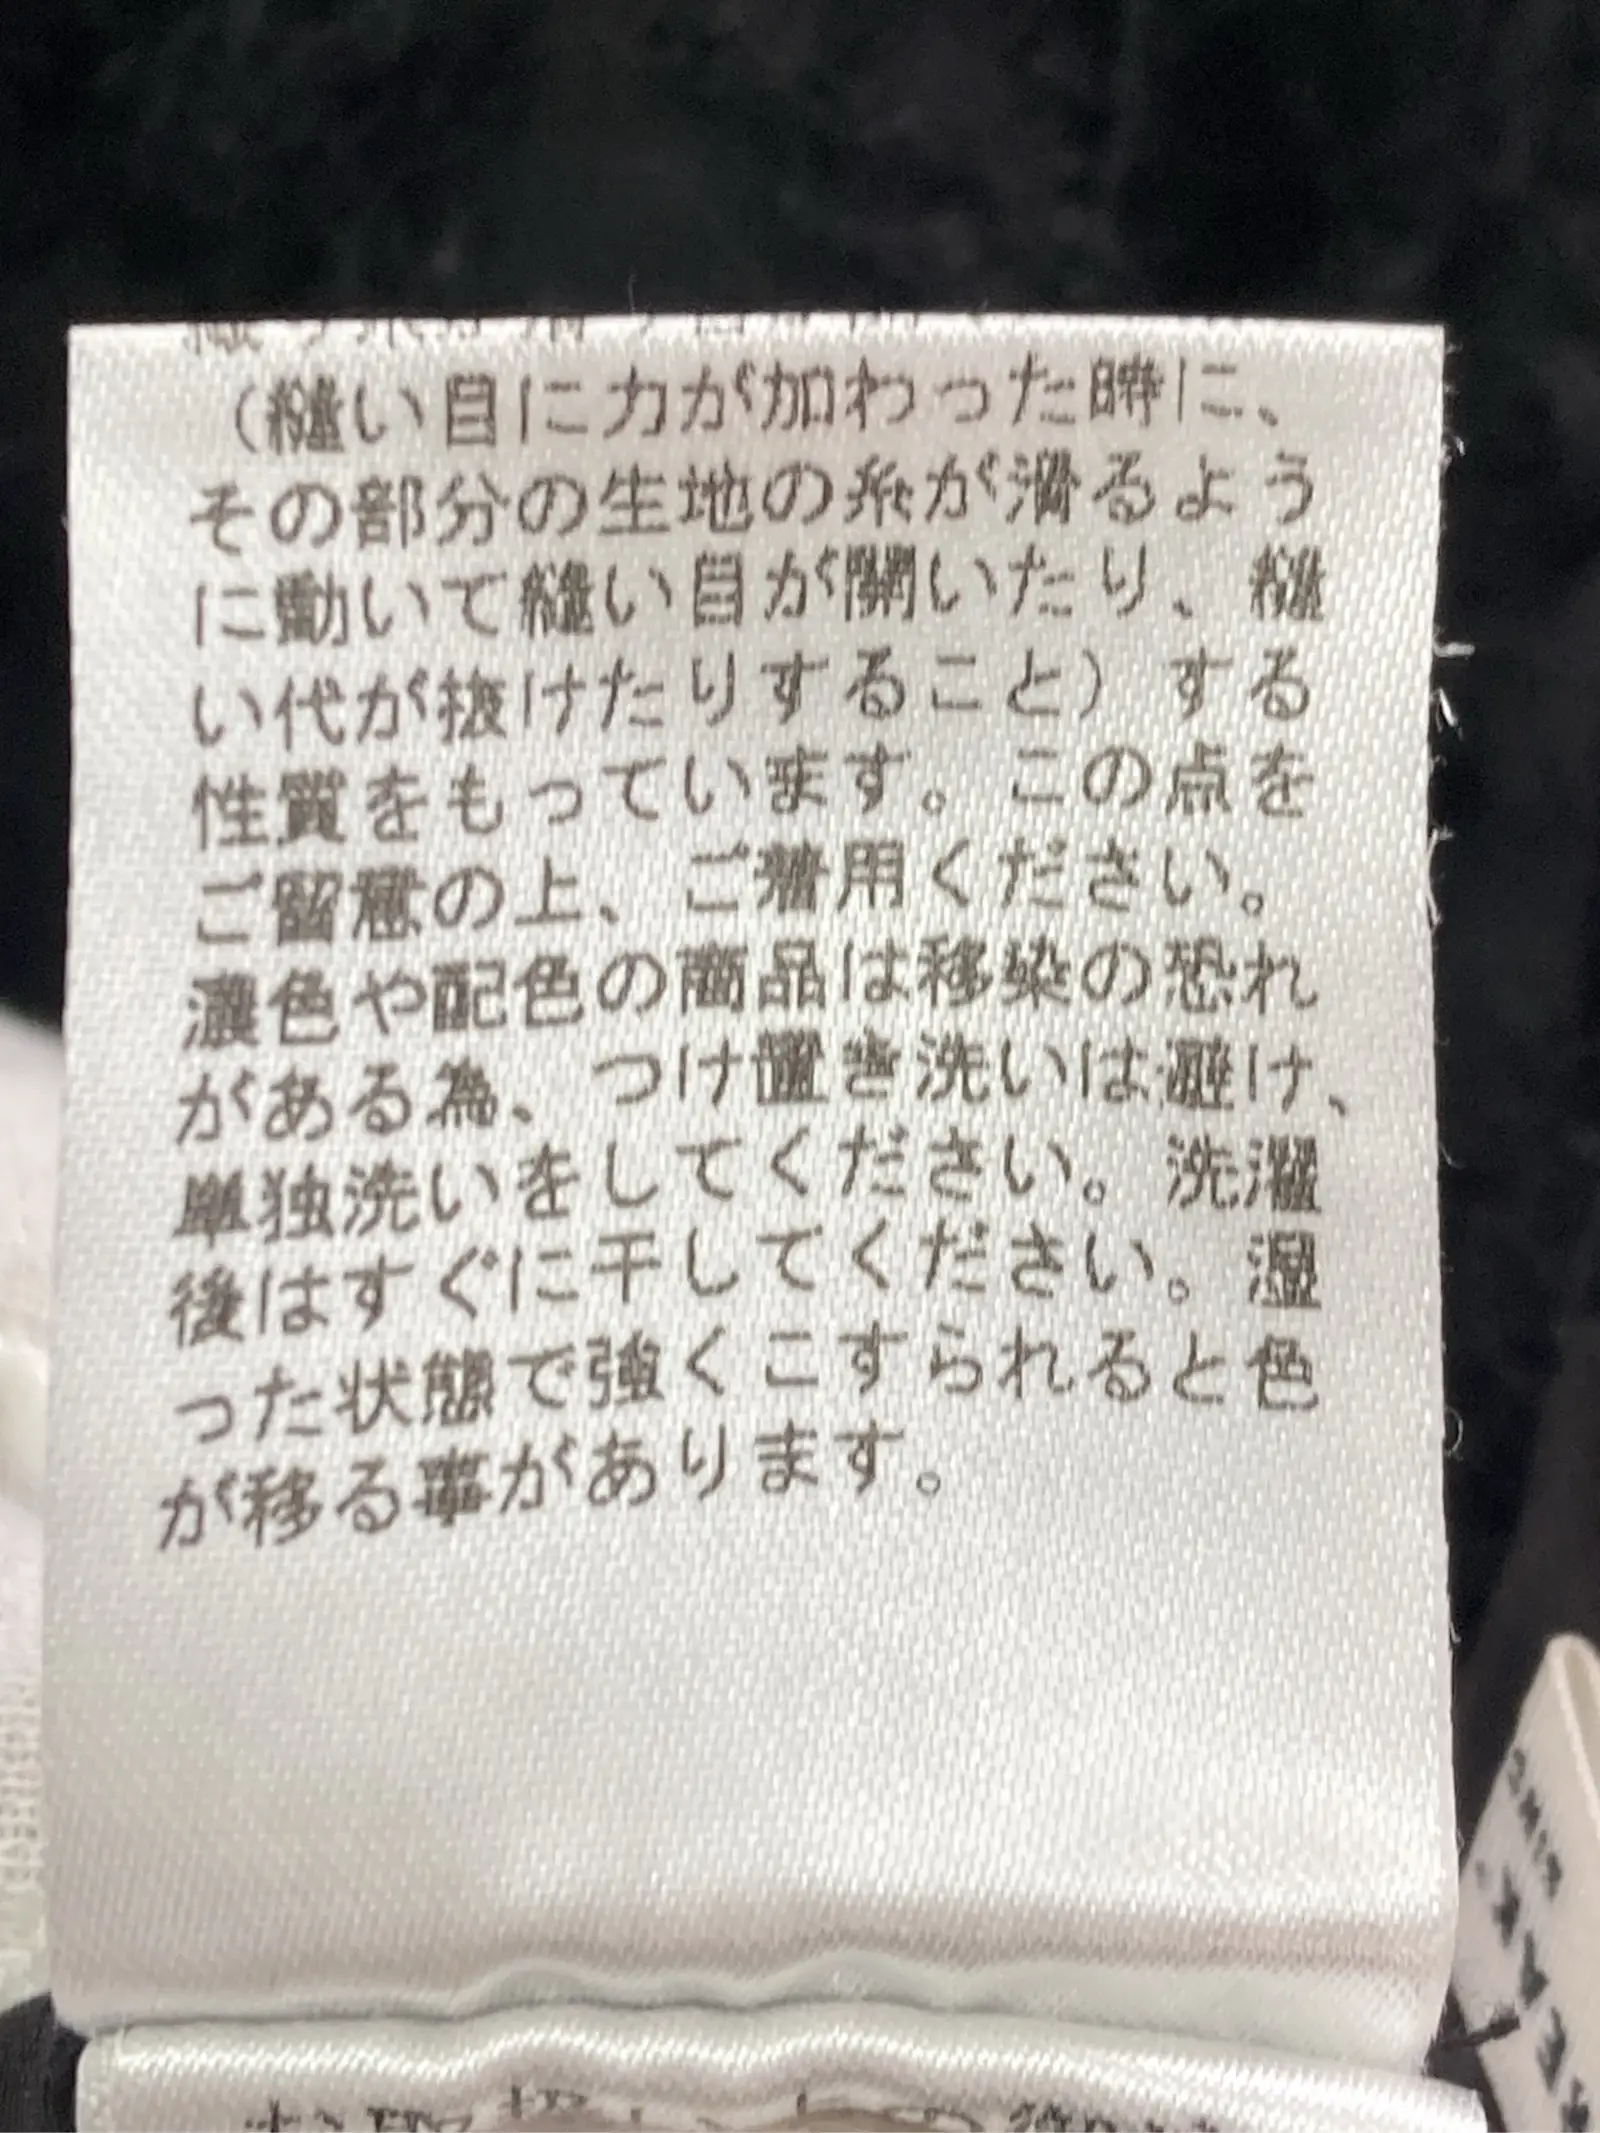 （縫い目に力が加わった時に、
その部分の生地の糸が滑るよう
に動いて縫い目が開いたり、縫
い代が抜けたりすること）する
性質をもっています。この点を
ご留意の上、ご着用ください。
濃色や配色の商品は移染の恐れ
がある為、つけ置き洗いは避け、
単独洗いをしてください。洗濯
後はすぐに干してください。湿
った状態で強くこすられると色
が移る事があります。